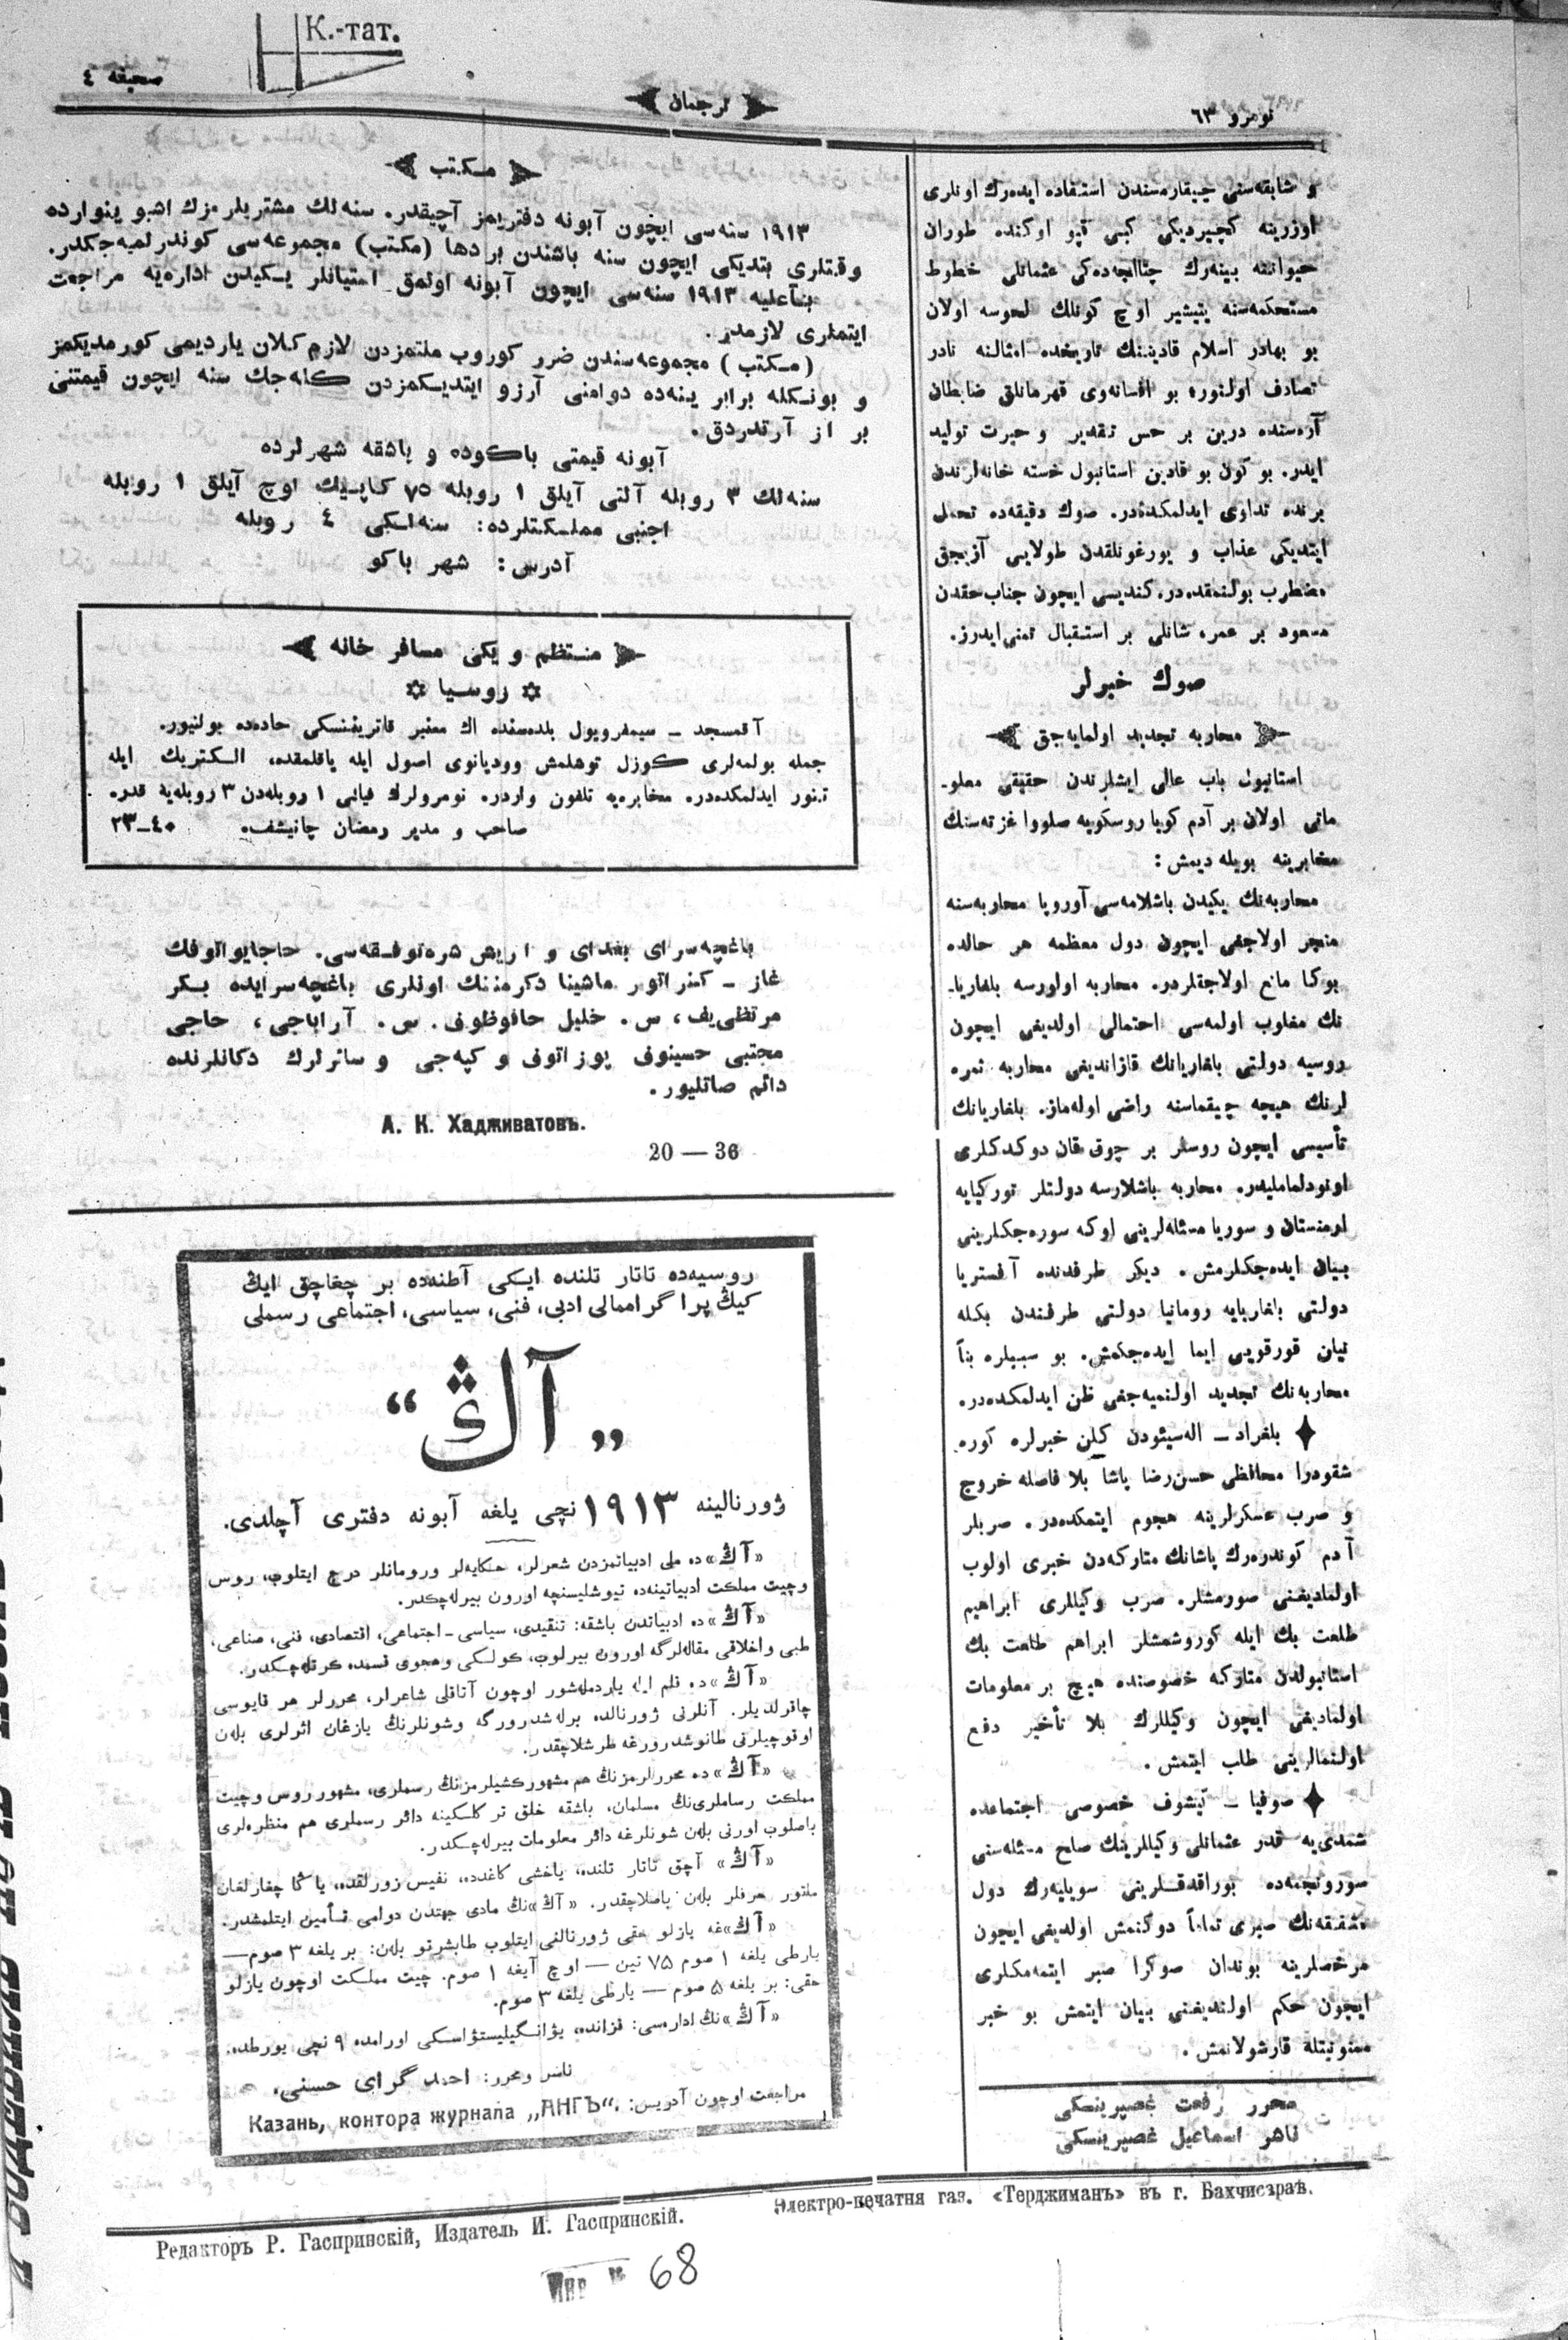 К.-тат.
صحيفه ٤
ترجمان
نومرو ٦٣
و شابقه‌سنى چيقارمسندن استفاده ايده‌رك اونلرى
اوزرينه كچيرديكى كبى قپو اوكنده طوران
حيواننه بينه‌رك چتالجه‌ده‌كى عثمانلى خطوط
مستحكمه‌سنه يتيشير اوچ كونلك لحوسه اولان
بو بهادر اسلام قادينينك تاريخده امثالنه نادر
تصادف اولنوره بو افسانه‌وى قهرمانلق ضابطان
آره‌سنده درين بر حس تقدير و حيرت توليد
ايدر. بو كون بو قادين استانبول خسته خانه‌لرندن
برنده تداوى ايدلمكده‌در. صوك دقيقه‌ده تحمل
ايتديكى عذاب و يورغونلقدن طولايى آزيجق
مضطرب بولنمقده‌در. كنديسى ايچون جناب حقدن
مسعود بر عمر، شانلى بر استقبال تمنى ايدرز.
صوك خبرلر
محاربه تجديد اولمايه‌جق
استانبول باب عالى ايشلرندن حقيقى معلو-
ماتى اولان بر آدم كويا روسكويه صلووا غزته‌سنك
مخابرينه بويله ديمش :
محاربه‌نك يكيدن باشلامه‌سى آوروپا محاربه‌سنه
منجر اولاجغى ايچون دول معظمه هر حالده
بوكا مانع اولاجقلردر. محاربه اولورسه بلغاريا-
نك مغلوب اولمه‌سى احتمالى اولديغى ايچون
روسيه دولتى بلغاريانك قازانديغى محاربه ثمره
لرنك هيچه چيقماسنه راضى اوله‌ماز. بلغاريانك
تأسيسى ايچون روسلر بر چوق قان دوكدكلرى
اونودلماملیدر. محاربه باشلارسه دولتلر توركيايه
ارمنستان و سوريا مسئله‌لرينى اوكه سوره‌جكلرينى
بيان ايده‌جكلرمش. ديكر طرفدنده آفستريا
دولتى بلغاريايه رومانيا دولتى طرفندن بكله
نيلن قورقويى ايما ايده‌جكمش. بو سببلره بناً
محاربه‌نك تجديد اولنميه‌جغى ظن ايدلمكده‌در.
بلغراد – اله‌سيئودن كلن خبرلره كوره
شقودرا محافظى حسن رضا پاشا بلا فاصله خروج
و صرب عسكرلرينه هجوم ايتمكده‌در. صربلر
آدم كوندره‌رك پاشانك متاركه‌دن خبرى اولوب
اولماديغنى صورمشلر. صرب وكيللرى ابراهيم
طلعت بك ايله كوروشمشلر ابراهم طلعت بك
استانبولدن متاركه خصوصنده هيچ بر معلومات
اولماديغى ايچون وكيللرك بلا تأخير دفع
اولنمالرينى طلب ايتمش.
صوفيا – تيشوف خصوصى اجتماعده
شمدى‌يه قدر عثمانلى وكيللرينك صلح مسئله‌سنى
سورونجمه‌ده بوراقدقلرينى سويليه‌رك دول
متفقه‌نك صبرى تماماً دوكنمش اولديغى ايچون
مرخصلرينه بوندان صوكرا صبر ايتمه‌مكلرى
ايچون حكم اولنديغنى بيان ايتمش بو خبر
ممنونيتله قارشولانمش.
محرر رفعت غصپرينسكى
ناشر اسماعيل غصپرينسكى
مكتب
١٩١٣ سنه‌سى ايچون آبونه دفتريمز آچيقدر. سنه‌لك مشتريلرمزك اشبو ينوارده
وقتلرى بتديكى ايچون سنه باشندن بردها (مكتب) مجموعه‌سى كوندرلميه‌جكدر.
بناًعليه ١٩١٣ سنه‌سى ايچون آبونه اولمق استيانلر يكيدن اداره‌يه مراجعت
ايتملرى لازمدر.
(مكتب) مجموعه‌سندن ضرر كوروب ملتمزدن لازم كلان ياردیمى كورمديكمز
و بونكله برابر ينه‌ده دوامنى آرزو ايتديكمزدن كله‌جك سنه ايچون قيمتنى
بر از آرتدردق.
آبونه قيمتى باكوده و باشقه شهرلرده
سنه‌لك ٣ روبله آلتى آيلق ١ روبله ٧٥ كاپيك اوچ آيلق ١ روبله
اجنبى مملكتلرده: سنه‌لكى ٤ روبله
آدرس: شهر باكو
منتظم و يكى مسافر خانه
روسيا
آقمسجد – سيمفروپول بلده‌سنده اك معتبر قاتريننسكى جاده‌ده بولنيور.
جمله بولمه‌لرى كوزل توهلمش ووديانوى اصول ايله ياقلمقده، الكتريك ايله
تنور ايدلمكده‌در. مخابره‌يه تلفون واردر. نومرولرك فياتى ١ روبله‌دن ٣ روبله‌يه قدر.
صاحب و مدير رمضان چانيشف. ٤٠–٢٣
باغچه‌سراى بغداى و اريش فره‌توفقه‌سى. حاجايواتوفك
غاز – كنراتور ماشينا دكرمننك اونلرى باغچه‌سرايده بكر
مرتضى‌يف، س. خليل حافوظوف. س. آراباجى، حاجى
مجتبى حسينوف پوزاتوف و كپه‌جى و سائرلرك دكانلرنده
دائم صاتليور.
А. К. Хадживатовъ.
20 — 36
روسيه‌ده تاتار تلنده ايكى آطنه‌ده بر چغاچق ايڭ
كيڭ پراگراممالى ادبى، فنى، سياسى، اجتماعى رسملى
„آڭ“
ژورنالينه ١٩١٣ نچى يلغه آبونه دفترى آچلدى.
«آڭ» ده ملى ادبياتمزدن شعرلر، حكايه‌لر ورومانلر درج ايتلوب، روس
وچيت مملكت ادبياتينه‌ده تيوشليسنچه اورون بيرله‌چكدر.
«آڭ» ده ادبياتدن باشقه: تنقيدى، سياسى – اجتماعى، اقتصادى، فنى، صناعى،
طبى واخلاقى مقاله‌لرگه اورون بيرلوب، كولكى وهجوى قسمده كرتله‌چكدر.
«آڭ» ده قلم ايله ياردمله‌شور اوچون آتاقلى شاعرلر، محررلر هر قايوسى
چاقرلديلر. آنلرنى ژورنالده برله‌شدررگه وشونلرنڭ يازغان اثرلرى بله‌ن
اوقوچيلرنى طانوشدرورغه طرشلاچقدر.
«آڭ» ده محررلرمزنڭ هم مشهور كشيلرمزنڭ رسملرى، مشهور روس وچيت
مملكت رساملرى‌نڭ مسلمان، باشقه خلق تركلكينه دائر رسملرى هم منظره‌لرى
باصلوب اورنى بله‌ن شونلرغه دائر معلومات بيرله‌چكدر.
«آڭ» آچق تاتار تلنده، ياخشى كاغدده، نفيس زورلقده، ياڭا چغارلغان
ملتور حرفلر بله‌ن باصلاچقدر. «آڭ»نڭ مادى جهتدن دوامى تأمين ايتلمشدر.
«آڭ»غه يازلو حقى ژورنالنى ايتلوب طابشرتو بله‌ن: بر يلغه ٣ صوم—
يارطى يلغه ١ صوم ٧٥ تين — اوچ آيغه ١ صوم. چيت مملكت اوچون يازلو
حقى: بر يلغه ٥ صوم — يارطى يلغه ٣ صوم.
«آڭ»نڭ اداره‌سى: قزانده، يۋانگيليستۋاسكى اورامده ٩ نچى يورطده.
ناشر ومحرر: احمد گراى حسنى.
مراجعت اوچون آدريس:
Казань, контора журнала „АНГЪ“.
Редакторъ Р. Гаспринскій, Издатель И. Гаспринскій.
Электро-печатня газ. «Терджиманъ» въ г. Бахчисараѣ.
Инв № 68